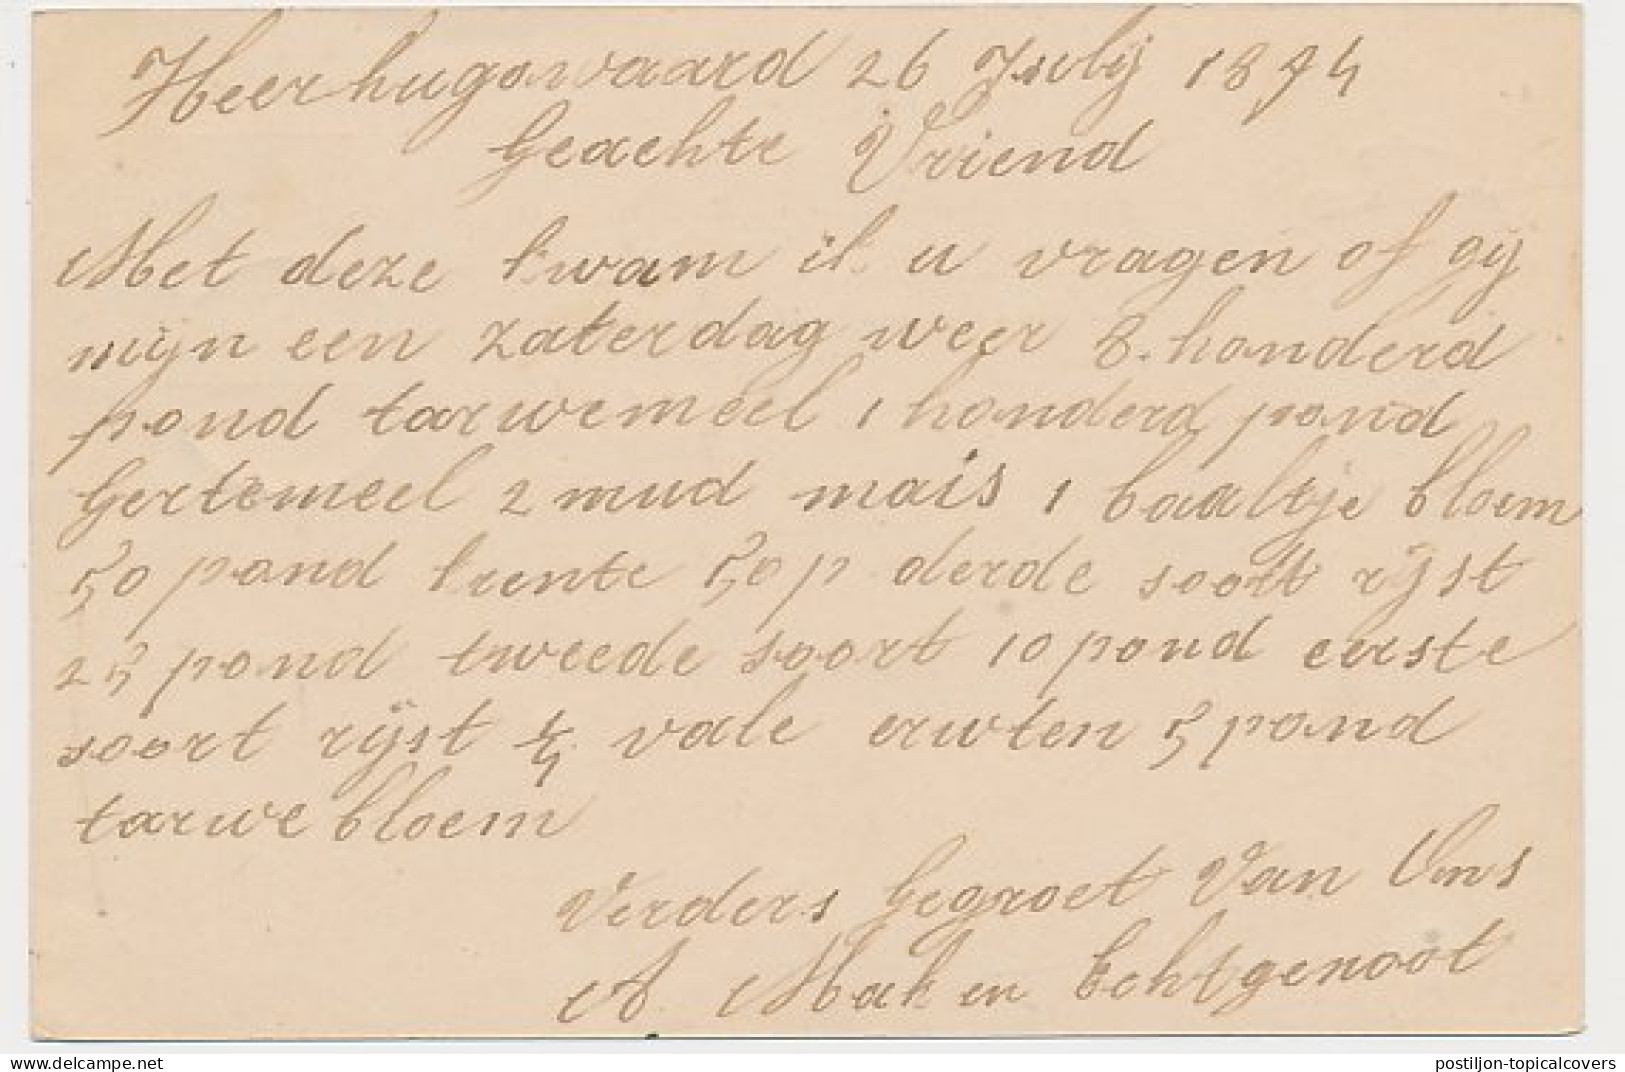 Heerhugowaard 26 July 1894
Geachte Vriend
Met deze kwam ik u vragen of gij
mijn een zaterdag weer 8. honderd
pond tarwemeel 1 honderd pond
Gertemeel 2 mud mais 1 baaltje bloem
50 pond krente 50 p derde soort rijst
25 pond tweede soort 10 pond eerste
soort rijst 1/4 vale erwten 5 pond
tarwe bloem
Verders Gegroet Van Ons
A. Mak en Echtgenoot
delcampe.net
postiljon-topicalcovers